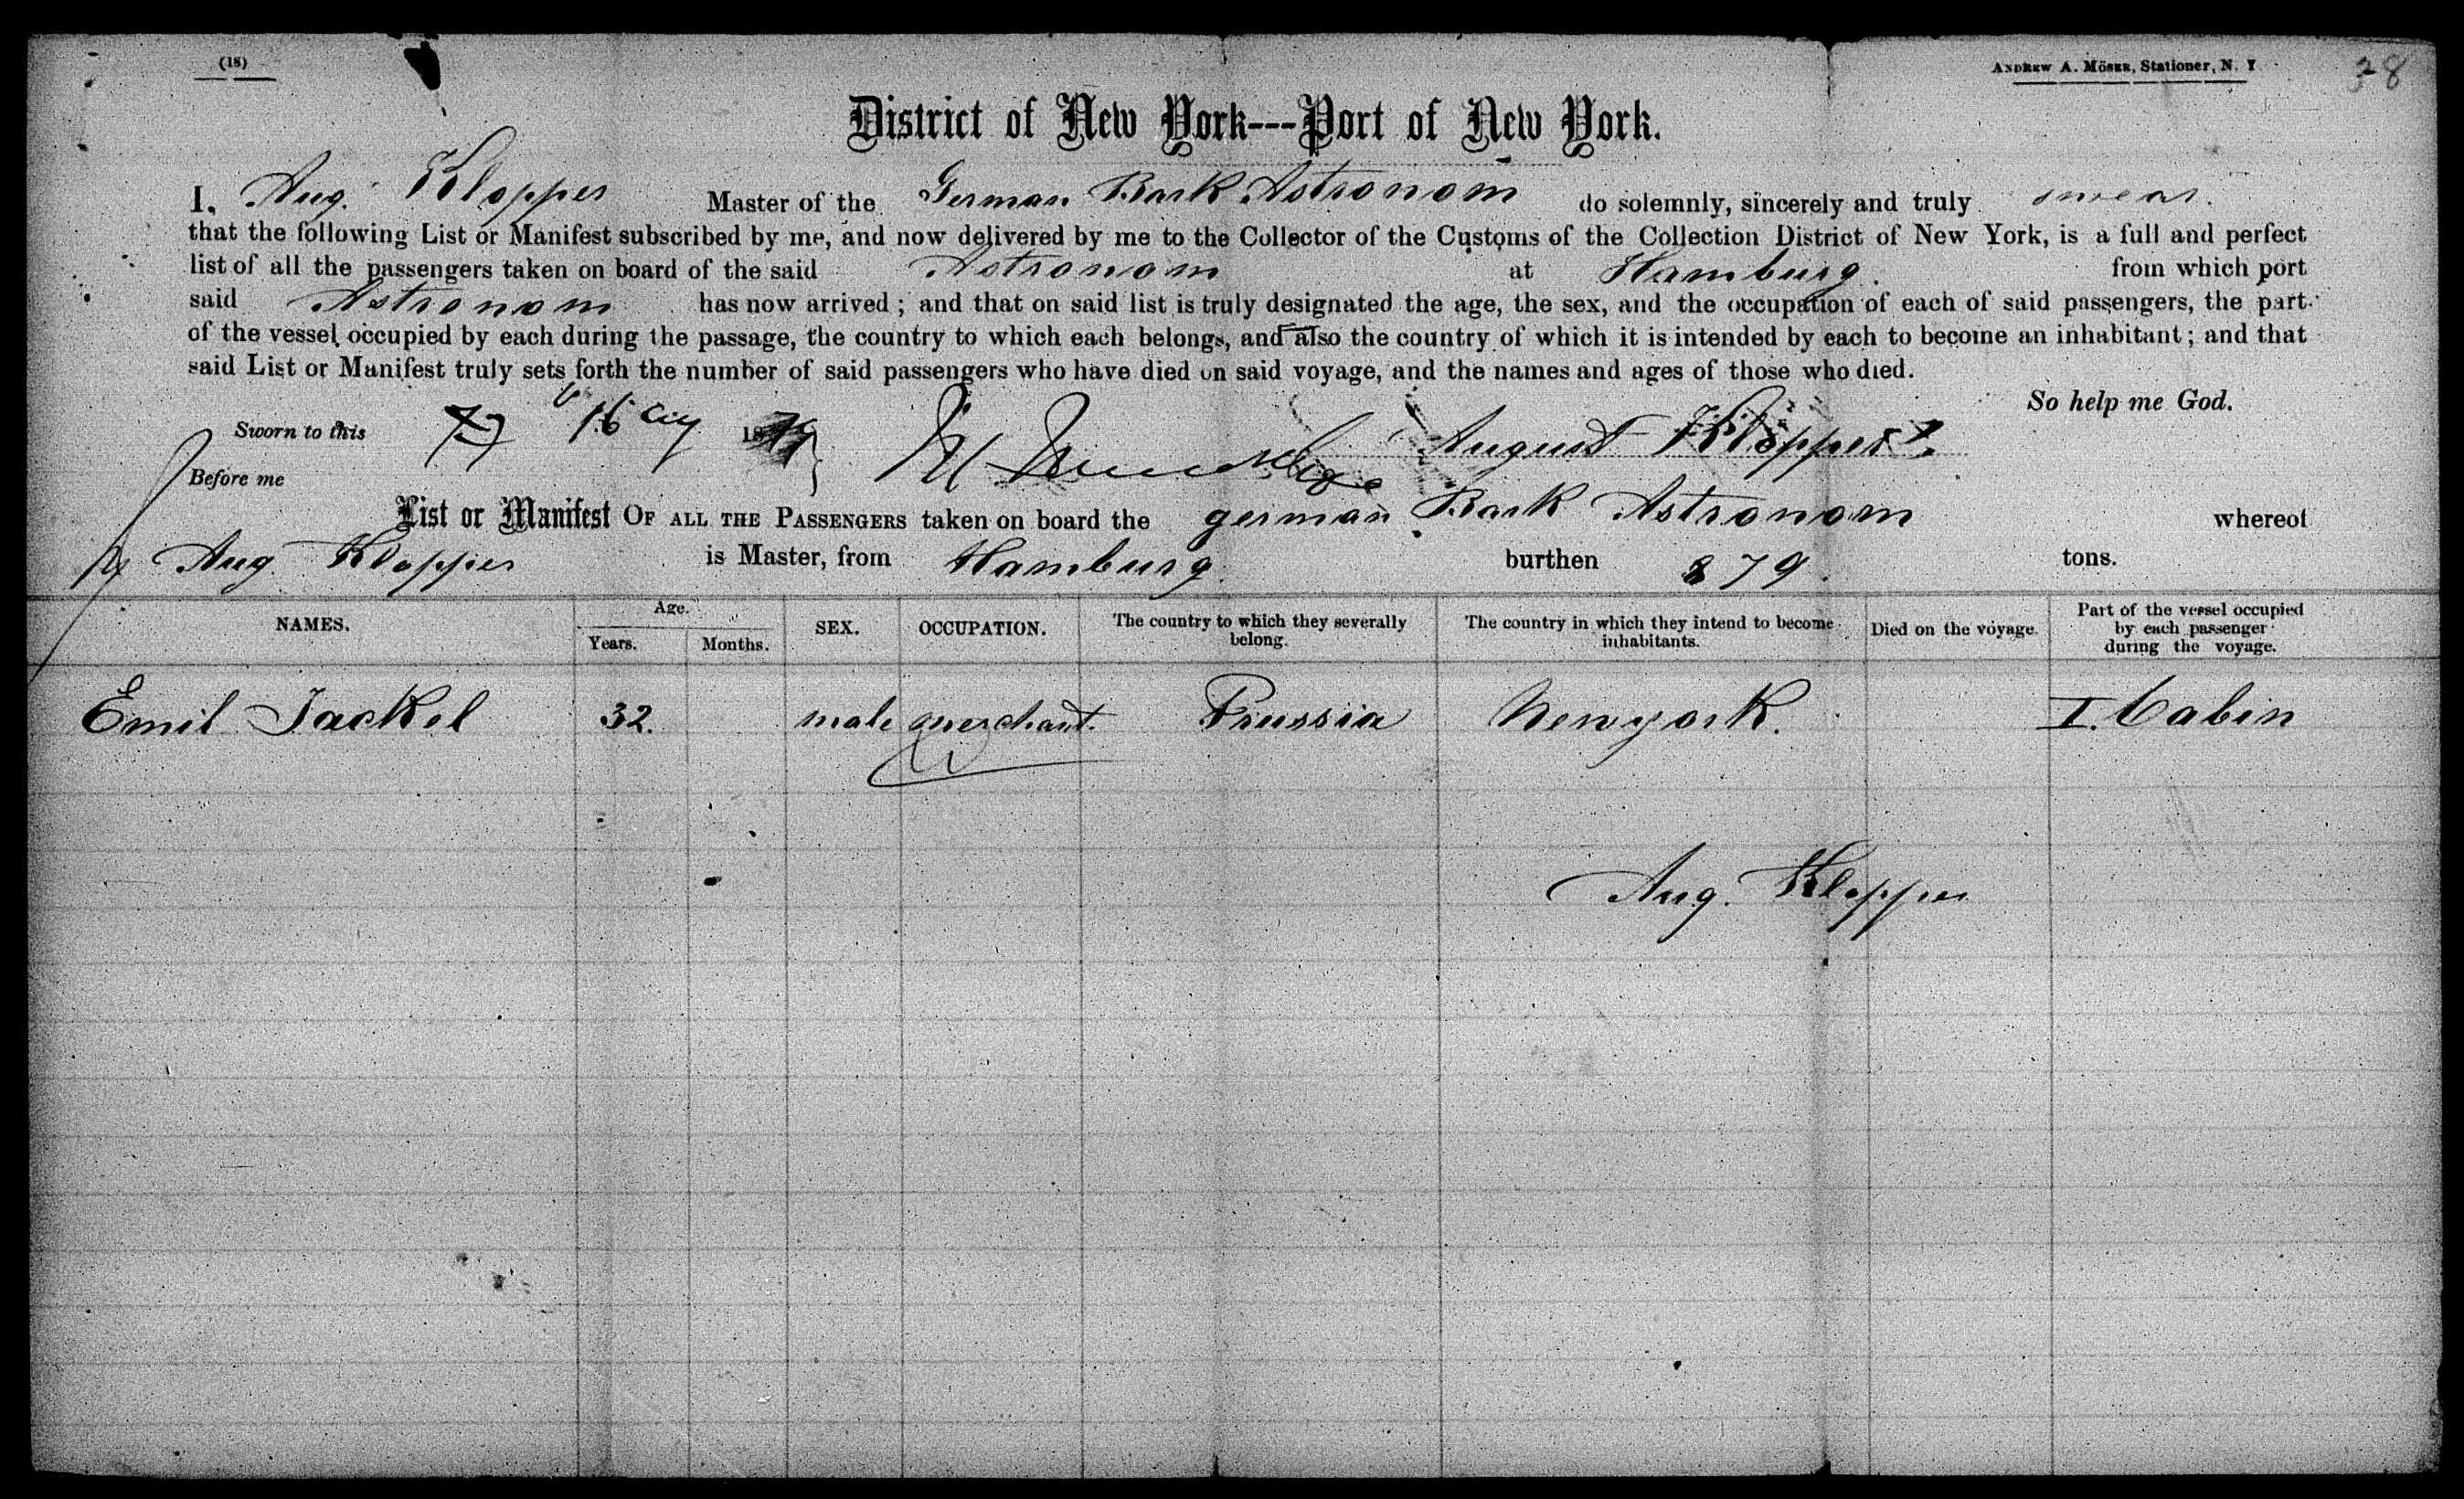 (18)
ANDREW A. MÖSER, Stationer, N. Y
38
District of New York---Port of New York.
I, Aug. Klopper Master of the German Bark Astronom do solemnly, sincerely and truly swear.
that the following List or Manifest subscribed by me, and now delivered by me to the Collector of the Customs of the Collection District of New York, is a full and perfect
list of all the passengers taken on board of the said Astronom at Hamburg. from which port
said Astronom has now arrived; and that on said list is truly designated the age, the sex, and the occupation of each of said passengers, the part
of the vessel occupied by each during the passage, the country to which each belongs, and also the country of which it is intended by each to become an inhabitant; and that
said List or Manifest truly sets forth the number of said passengers who have died on said voyage, and the names and ages of those who died.
So help me God.
Sworn to this 18
August Klöpper
Before me
List or Manifest OF ALL THE PASSENGERS taken on board the german Bark Astronom whereof
Aug Klopper is Master, from Hamburg burthen 879. tons.
NAMES. Age. Years. Months. SEX. OCCUPATION. The country to which they severally belong. The country in which they intend to become inhabitants. Died on the voyage. Part of the vessel occupied by each passenger during the voyage.
Emil Jackel 32. male merchant. Prussia Newyork. I. Cabin
Aug. Klopper